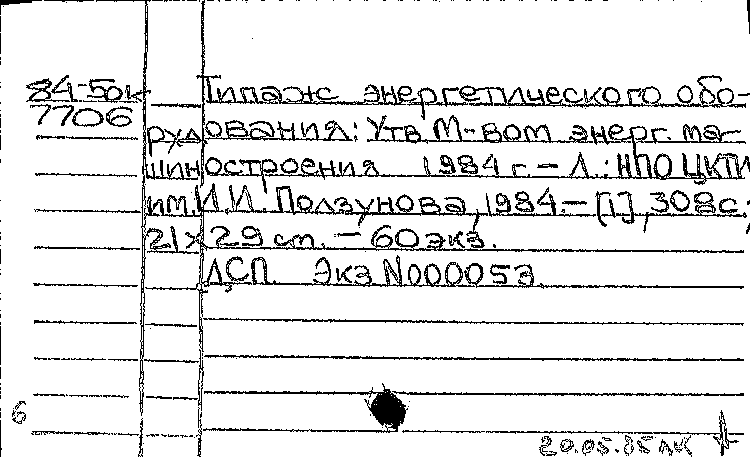 84-5ок Типаж энергетического обо-
7706 рудования: Утв. М-вом энерг. ма-
шиностроения 1984 г. – Л.: НПО ЦКТИ
им. И.И. Ползунова, 1984. – [1], 308 с.;
21 х 29 см. – 60 экз.
ДСП. Экз. N000053.
6
20.05.85